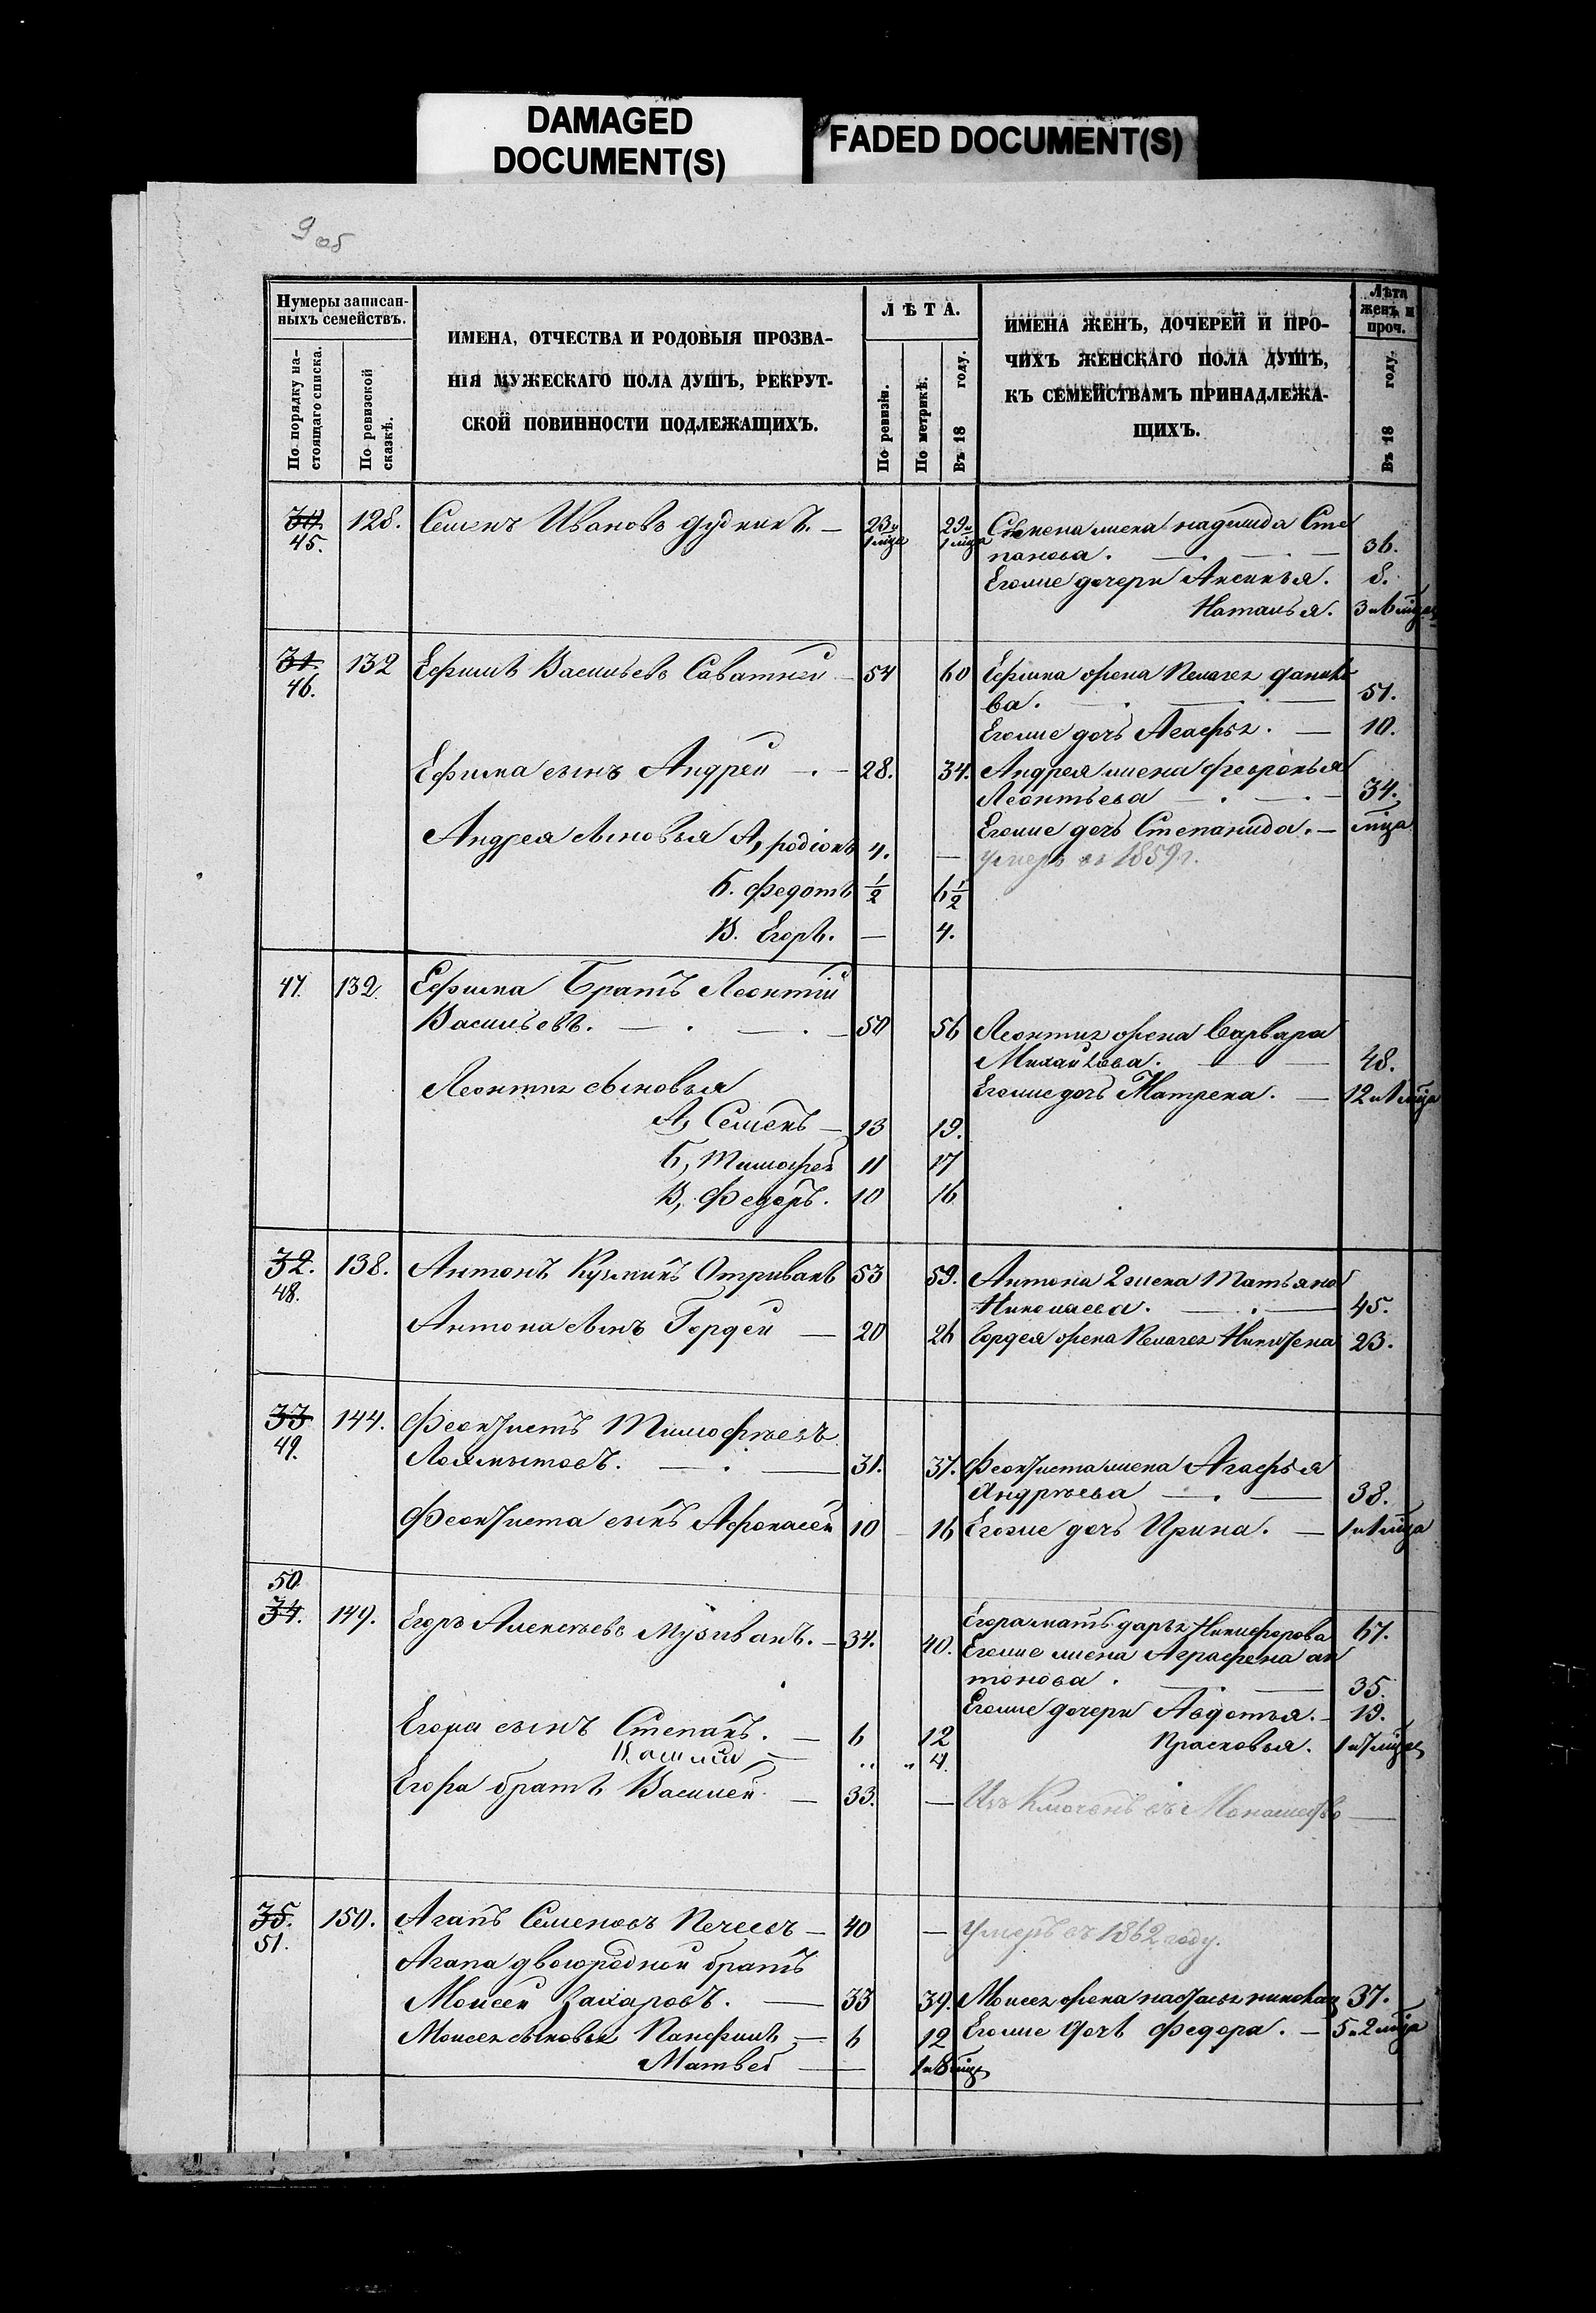 DAMAGED
DOCUMENT(S)
FADED DOCUMENT(S)
9 об
Нумеры записан-
ныхъ семействъ.
По порядку на-
стоящаго списка.
По ревизской
сказкѣ.
ИМЕНА, ОТЧЕСТВА И РОДОВЫЯ ПРОЗВА-
НІЯ МУЖЕСКАГО ПОЛА ДУШЪ, РЕКРУТ-
СКОЙ ПОВИННОСТИ ПОДЛЕЖАЩИХЪ.
ЛѢТА.
По ревизіи.
По метрикѣ.
Въ 18 году.
ИМЕНА ЖЕНЪ, ДОЧЕРЕЙ И ПРО-
ЧИХЪ ЖЕНСКАГО ПОЛА ДУШЪ,
КЪ СЕМЕЙСТВАМЪ ПРИНАДЛЕЖА-
ЩИХЪ.
Лѣта
женъ и
проч.
Въ 18 году.
45. 128. Семенъ Ивановъ Дудкинъ. — 23 и 29 и Семена жена Надежда Сте
1 мѣца 1 мѣца панова. — 36.
Егоже дочери Аксинья. 8.
Наталья. 3 и 6 мѣца
31. 132 Ефимъ Васильевъ 54 60 Ефима жена Пелагея Данило
46. ва. — 51.
Егоже дочь Агафья. — 10.
Ефима сынъ Андрей — 28. 34. Андрея жена Февронья
Леонтьева — 34.
Андрея сыновья А, родіонъ 4. — Егоже дочь Степанида. — мѣца
умеръ въ 1859 г.
Б. Федотъ ½ 6½
В. Егоръ. — 4.
47. 132. Ефима Братъ Леонтій
Васильевъ. — 50 56 Леонтия жена Варвара
Михайлова. — 48.
Леонтия сыновья Егоже дочь Матрена. — 12 и 1 мѣца
А, Семенъ — 13 19.
Б, Тимофей 11 17
В, Федоръ. 10 16
32. 138. Антонъ Кузминъ 53 59. Антона 2 жена Татьяна
48. Николаева. — 45.
Антона сынъ Гордей — 20 26 Гордея жена Пелагея 23.
33 144. Феоктистъ Тимофѣевъ
49. 31. 37. Феоктиста жена Агафья
Андрѣева — 38.
Феоктиста сынъ Афонасей 10 16 Егоже дочь Ирина. — 1 и 1 мѣца
50
34. 149. Егоръ Алексѣевъ — 34. 40. Егора мать Дарья Никифорова 67.
Егоже жена Аграфена Ан
тонова. — 35.
Егоже дочери Авдотья. — 13.
Егора сынъ Степанъ. — 6 12 Прасковья. 1 и 7 мѣца
— 4.
Егора братъ Василей — 33. —
35. 150. Агапъ Семеновъ — 40 — Умеръ въ 1862 году.
51.
Агапа двоюродной братъ
Моисей Захаровъ. — 33 39. Моисея жена Настасья 37.
Моисея сыновья Панфилъ — 6 12 Егоже дочь Федора. — 5 и 2 мѣца
Матвей — 1 и 8 мѣца